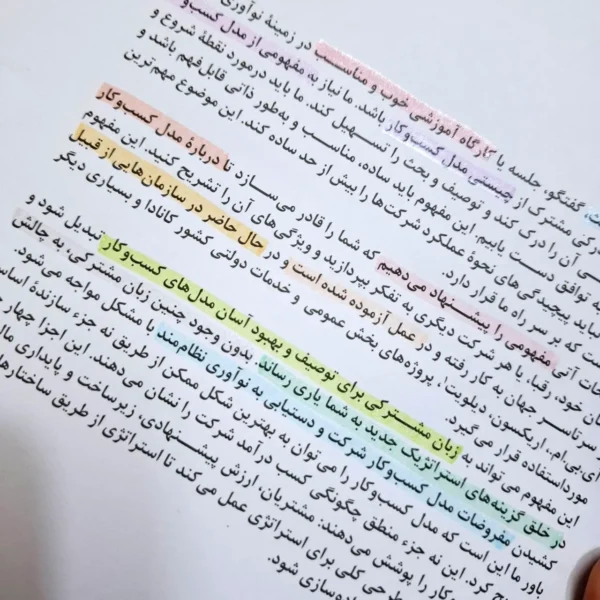 در زمینهٔ نوآوری
گفتگو، جلسه یا کارگاه آموزشی خوب و مناسب
مشترک از چیستی مدل کسب‌وکار باشد. ما نیاز به مفهومی از مدل کسب‌و
آن را درک کند و توصیف و بحث را تسهیل کند. ما باید درمورد نقطهٔ شروع و
به توافق دست یابیم. این مفهوم باید ساده، مناسب و به‌طور ذاتی قابل‌فهم باشد و
نباید پیچیدگی‌های نحوهٔ عملکرد شرکت‌ها را بیش از حد ساده کند. این موضوع مهم‌ترین
است که بر سر راه ما قرار دارد.
آتی مفهومی را پیشنهاد می‌دهیم که شما را قادر می‌سازد تا دربارهٔ مدل کسب‌وکار
خود، رقبا، یا هر شرکت دیگری به تفکر بپردازید و ویژگی‌های آن را تشریح کنید. این مفهوم
سرتاسر جهان به کار رفته و در عمل آزموده شده است و در حال حاضر در سازمان‌هایی از قبیل
آی.بی.ام، اریکسون، دیلویت، پروژه‌های بخش عمومی و خدمات دولتی کشور کانادا و بسیاری دیگر
مورداستفاده قرار می‌گیرد.
این مفهوم می‌تواند به زبان مشترکی برای توصیف و بهبود آسان مدل‌های کسب‌وکار تبدیل شود و
در خلق گزینه‌های استراتژیک جدید به شما یاری رساند. بدون وجود چنین زبان مشترکی، به چالش
کشیدن مفروضات مدل کسب‌وکار شرکت و دستیابی به نوآوری نظام‌مند با مشکل مواجه می‌شود.
باور ما این است که مدل کسب‌وکار را می‌توان به بهترین شکل ممکن از طریق نه جزء سازندهٔ
کرد. این نه جزء منطق چگونگی کسب درآمد شرکت را نشان می‌دهند. این اجزا چهار
را پوشش می‌دهند: مشتریان، ارزش پیشنهادی، زیرساخت و پایداری
طرحی کلی برای استراتژی عمل می‌کند تا استراتژی از طریق
شود.